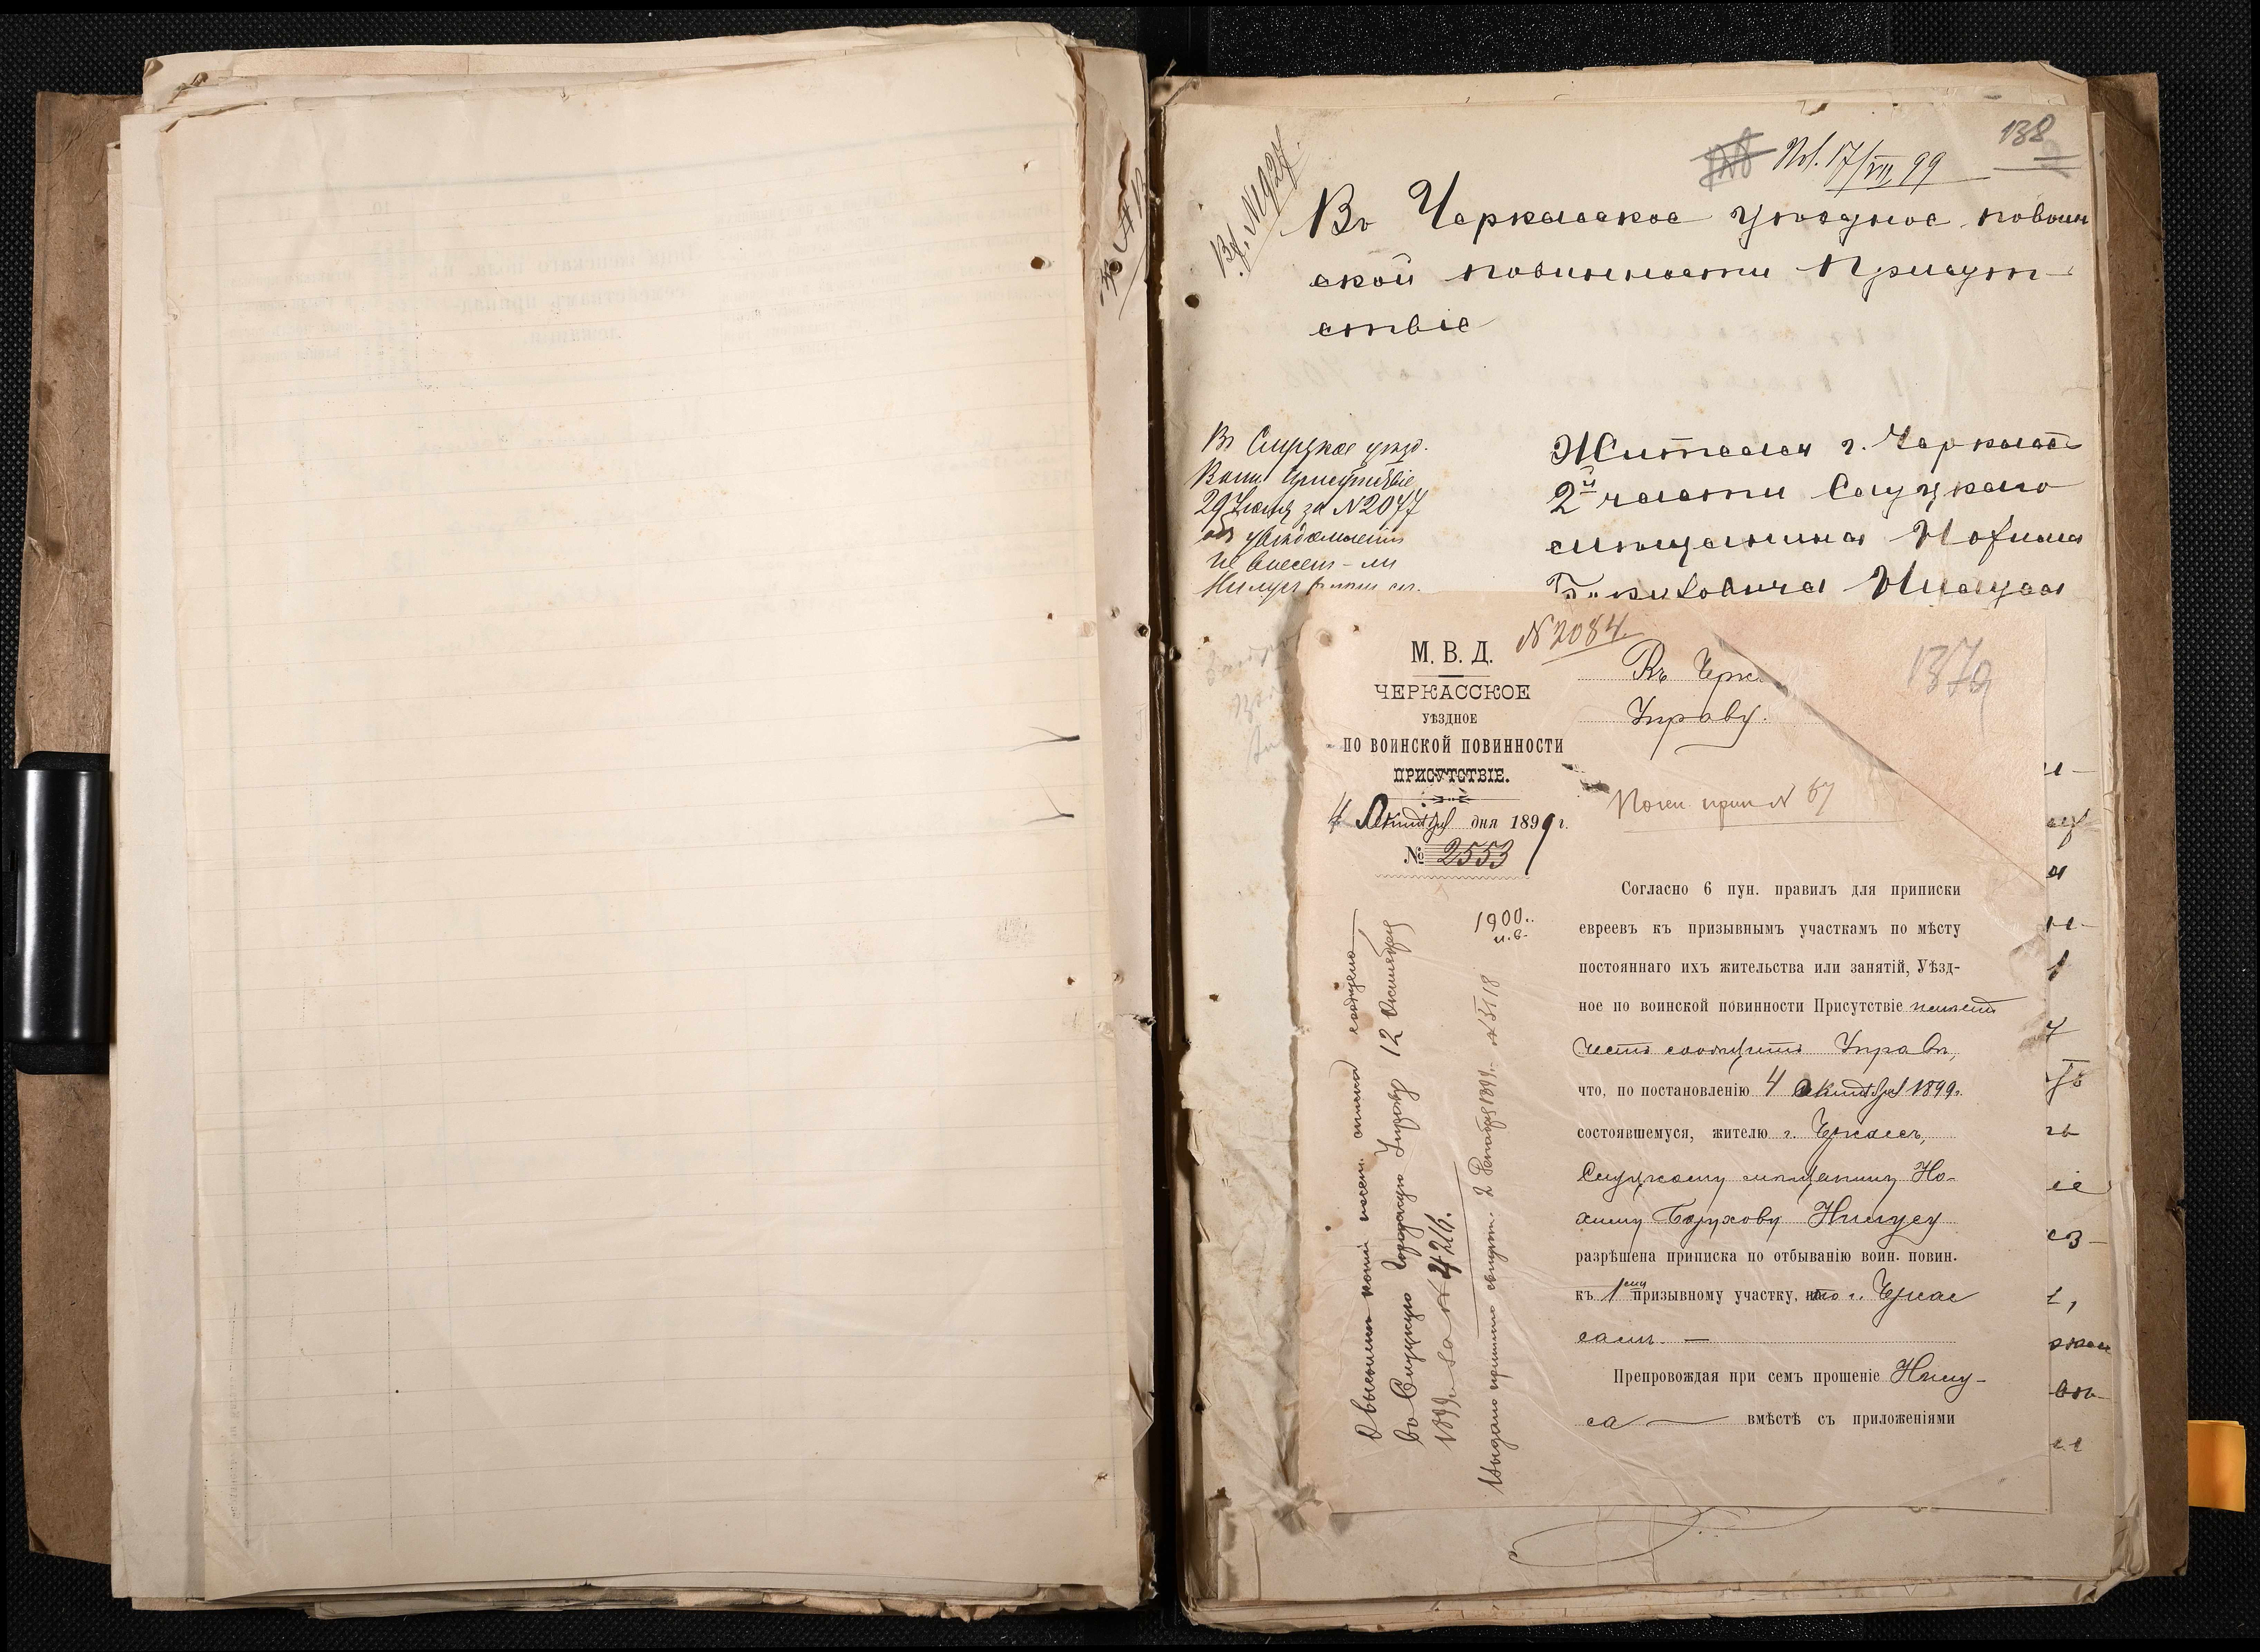 138
Пол. 17/VII 99
Вх. №927
Въ Черкасское уѣздное по воин
ской повинности Присут-
ствіе
Въ Слуцкое уѣзд.
Воин. Присутствіе
29 Іюля за №2077
объ увѣдомленіи
не внесенъ-ли
Жителя г. Черкассъ
2й части Слуцкаго
мѣщанина Нохима
Боруховича Нисуса
№2084
137а
М. В. Д.
ЧЕРКАССКОЕ
УѢЗДНОЕ
ПО ВОИНСКОЙ ПОВИННОСТИ
ПРИСУТСТВІЕ.
4 Октября дня 1899 г.
№ 2553
Въ Черк.
Управу.
№ 67
1900 г.
Согласно 6 пун. правилъ для приписки
евреевъ къ призывнымъ участкамъ по мѣсту
постояннаго ихъ жительства или занятій, Уѣзд-
ное по воинской повинности Присутствіе имѣетъ
честь сообщить Управѣ,
что, по постановленію 4 Октября 1899 г.
состоявшемуся, жителю г. Черкассъ,
Слуцкому мѣщанину Но-
химу Борухову Нисусу
разрѣшена приписка по отбыванію воин. повин.
къ 1му призывному участку, по г. Черкас
самъ. —
Препровождая при семъ прошеніе Нису-
са — вмѣстѣ съ приложеніями
О высылкѣ копіи посем. списка сообщено
въ Слуцкую Городскую Управу 12 Октября
1899 г. за № 4216.
Выдано приписно свидѣт. 2 Декабря 1899 г. № 5118